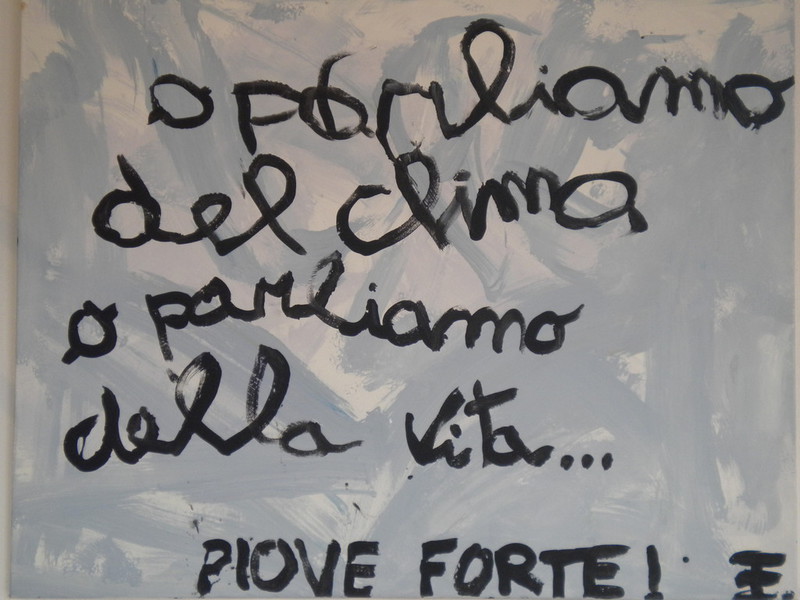 o parliamo
del clima
o parliamo
della vita...
PIOVE FORTE!